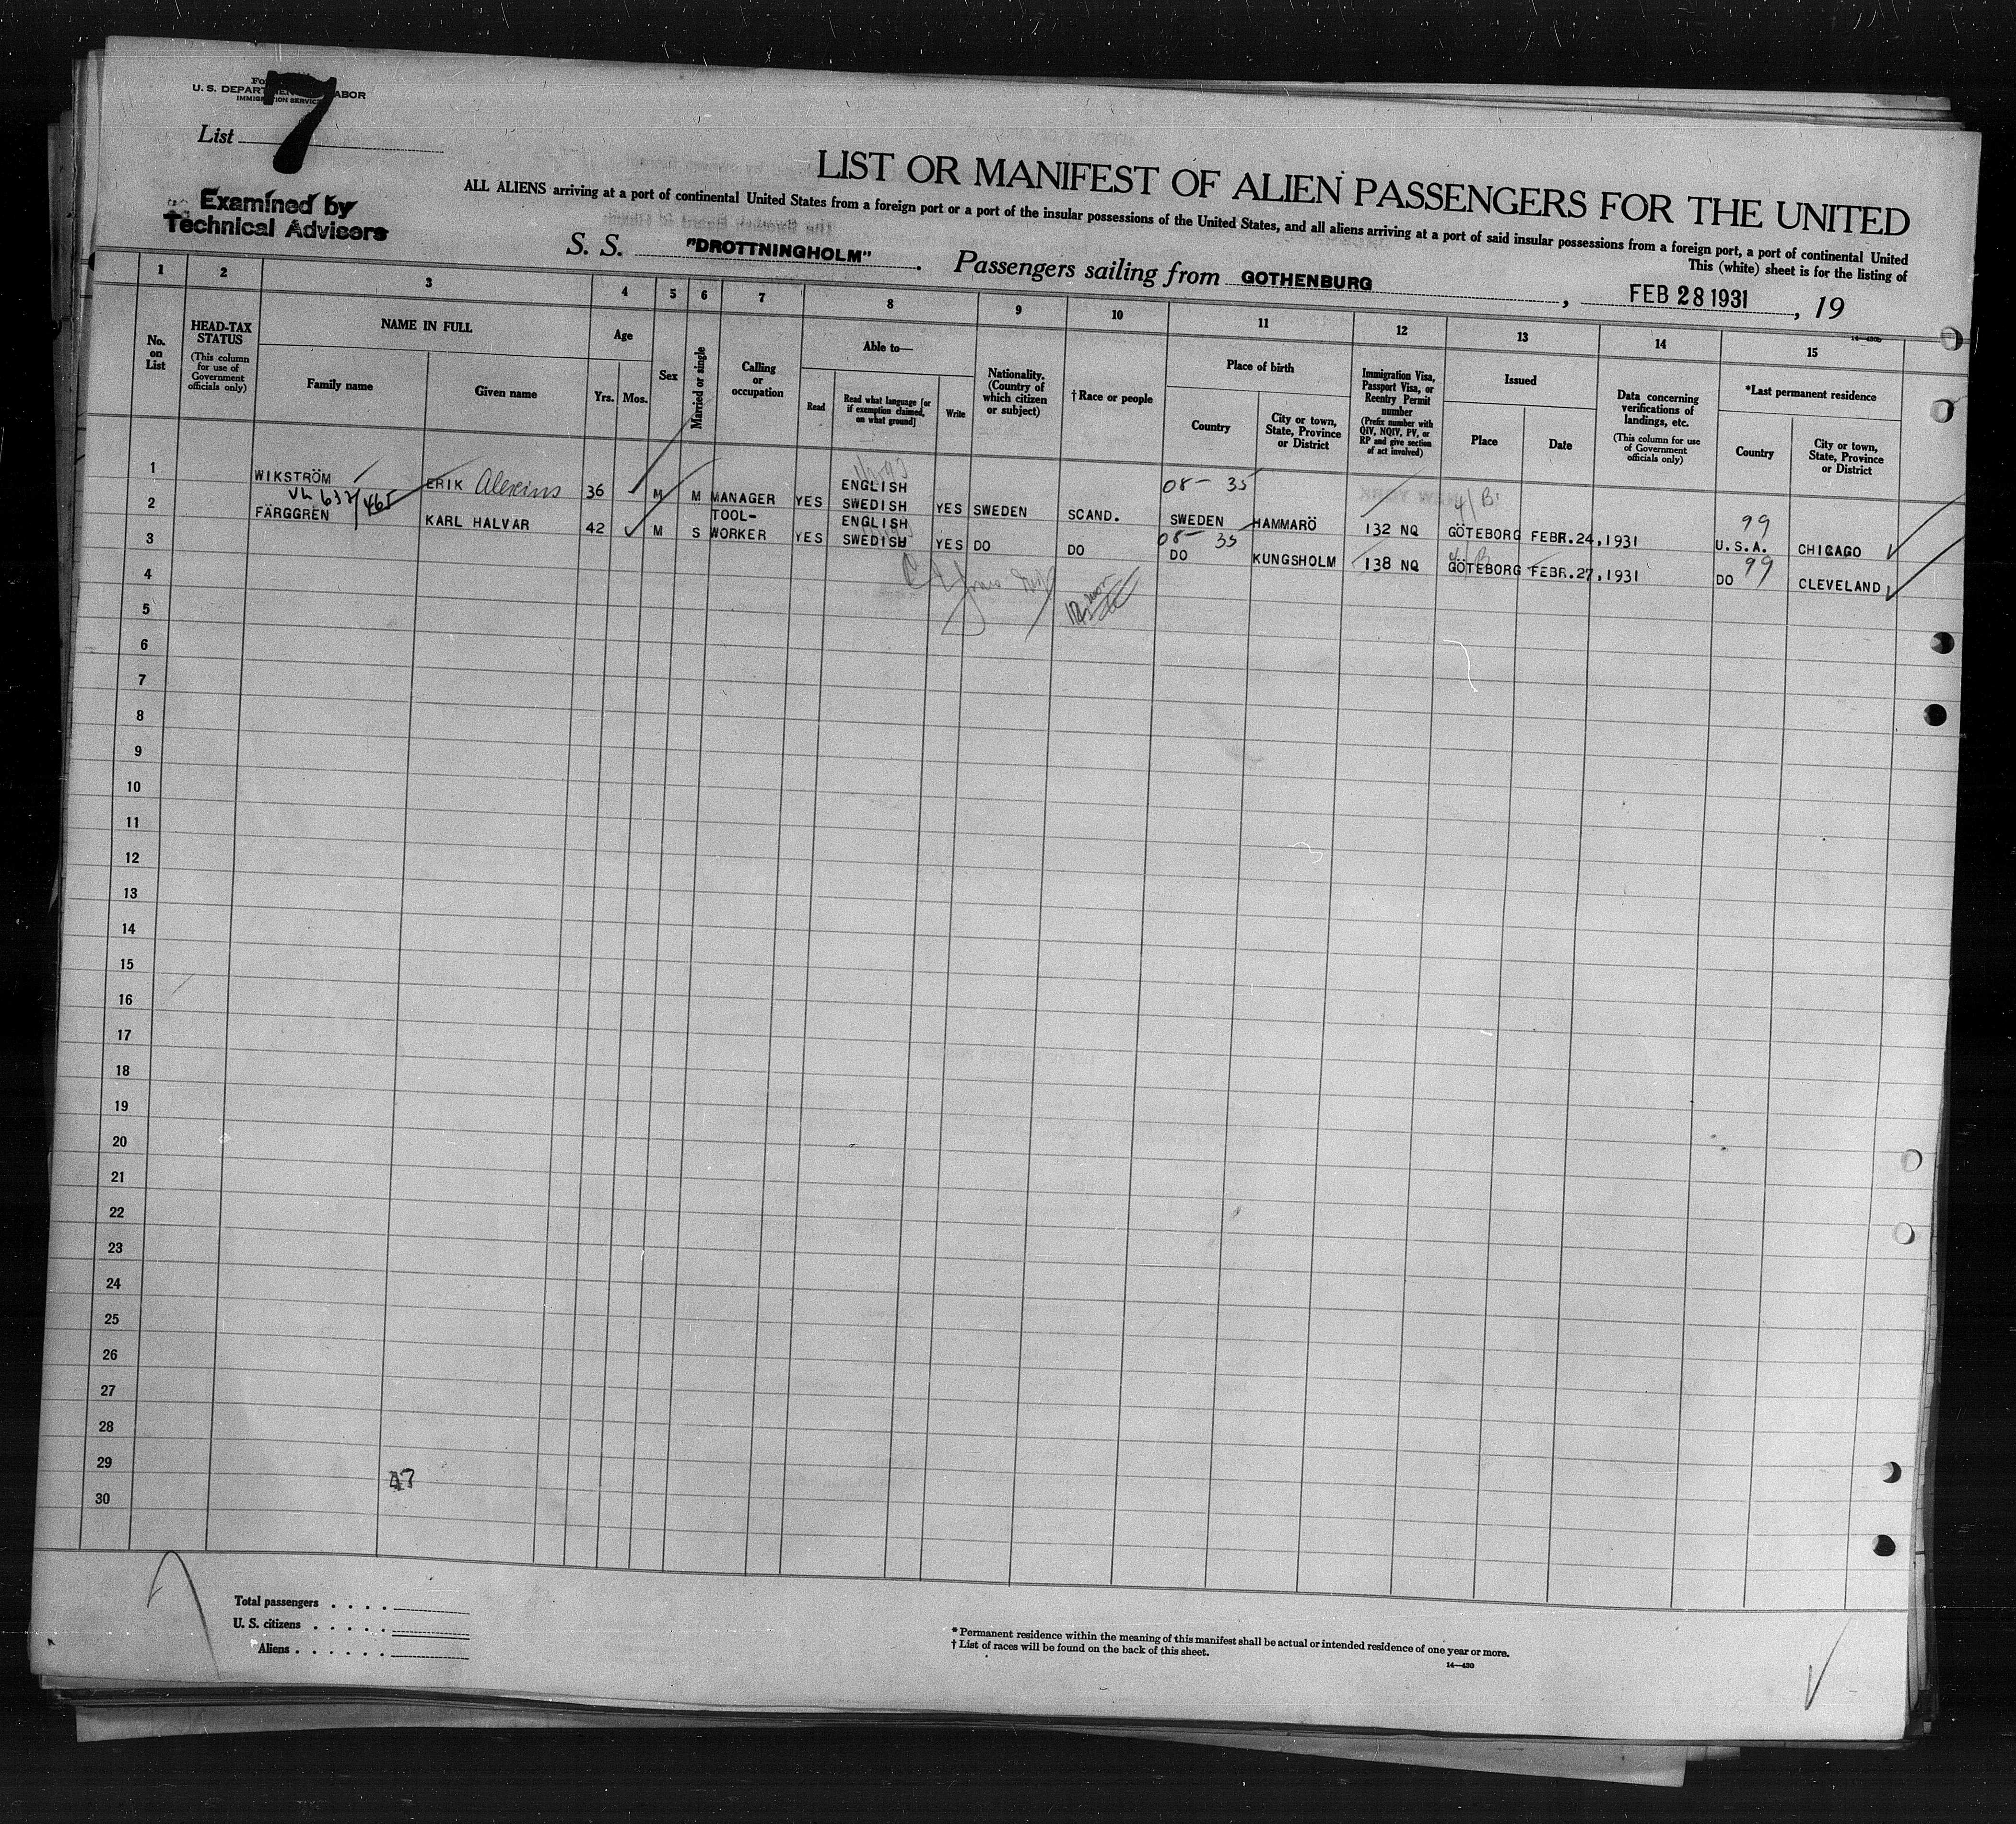 7
U. S. DEPARTMENT LABOR
IMMIGRATION SERVICE
List
Examined by
Technical Advisors
LIST OR MANIFEST OF ALIEN PASSENGERS FOR THE UNITED
ALL ALIENS arriving at a port of continental United States from a foreign port or a port of the insular possessions of the United States, and all aliens arriving at a port of said insular possessions from a foreign port, a port of continental United
This (white) sheet is for the listing of
S. S. "DROTTNINGHOLM". Passengers sailing from GOTHENBURG, FEB 28 1931, 19
1 2 3 4 5 6 7 8 9 10 11 12 13 14 15
14—430b
No. on List
HEAD-TAX STATUS
(This column for use of Government officials only)
NAME IN FULL
Family name
Given name
Age
Yrs. Mos.
Sex
Married or single
Calling or occupation
Able to—
Read
Read what language [or if exemption claimed, on what ground]
Write
Nationality. (Country of which citizen or subject)
†Race or people
Place of birth
Country
City or town, State, Province or District
Immigration Visa, Passport Visa, or Reentry Permit number
(Prefix number with QIV, NQIV, PV, or RP and give section of act involved)
Issued
Place
Date
Data concerning verifications of landings, etc.
(This column for use of Government officials only)
*Last permanent residence
Country
City or town, State, Province or District
08- 35
4/B
99
1 WIKSTRÖM ERIK 36 M M MANAGER YES ENGLISH SWEDISH YES SWEDEN SCAND. SWEDEN HAMMARÖ 132 NQ GÖTEBORG FEBR.24,1931 U.S.A. CHICAGO
632/465
08- 35
99
2 FÄRGGREN KARL HALVAR 42 M S TOOL-WORKER YES ENGLISH SWEDISH YES DO DO DO KUNGSHOLM 138 NQ GÖTEBORG FEBR.27,1931 DO CLEVELAND
3
4
5
6
7
8
9
10
11
12
13
14
15
16
17
18
19
20
21
22
23
24
25
26
27
28
29
30
47
Total passengers . . . .
U. S. citizens . . . . .
Aliens . . . . . .
* Permanent residence within the meaning of this manifest shall be actual or intended residence of one year or more.
† List of races will be found on the back of this sheet.
14—430